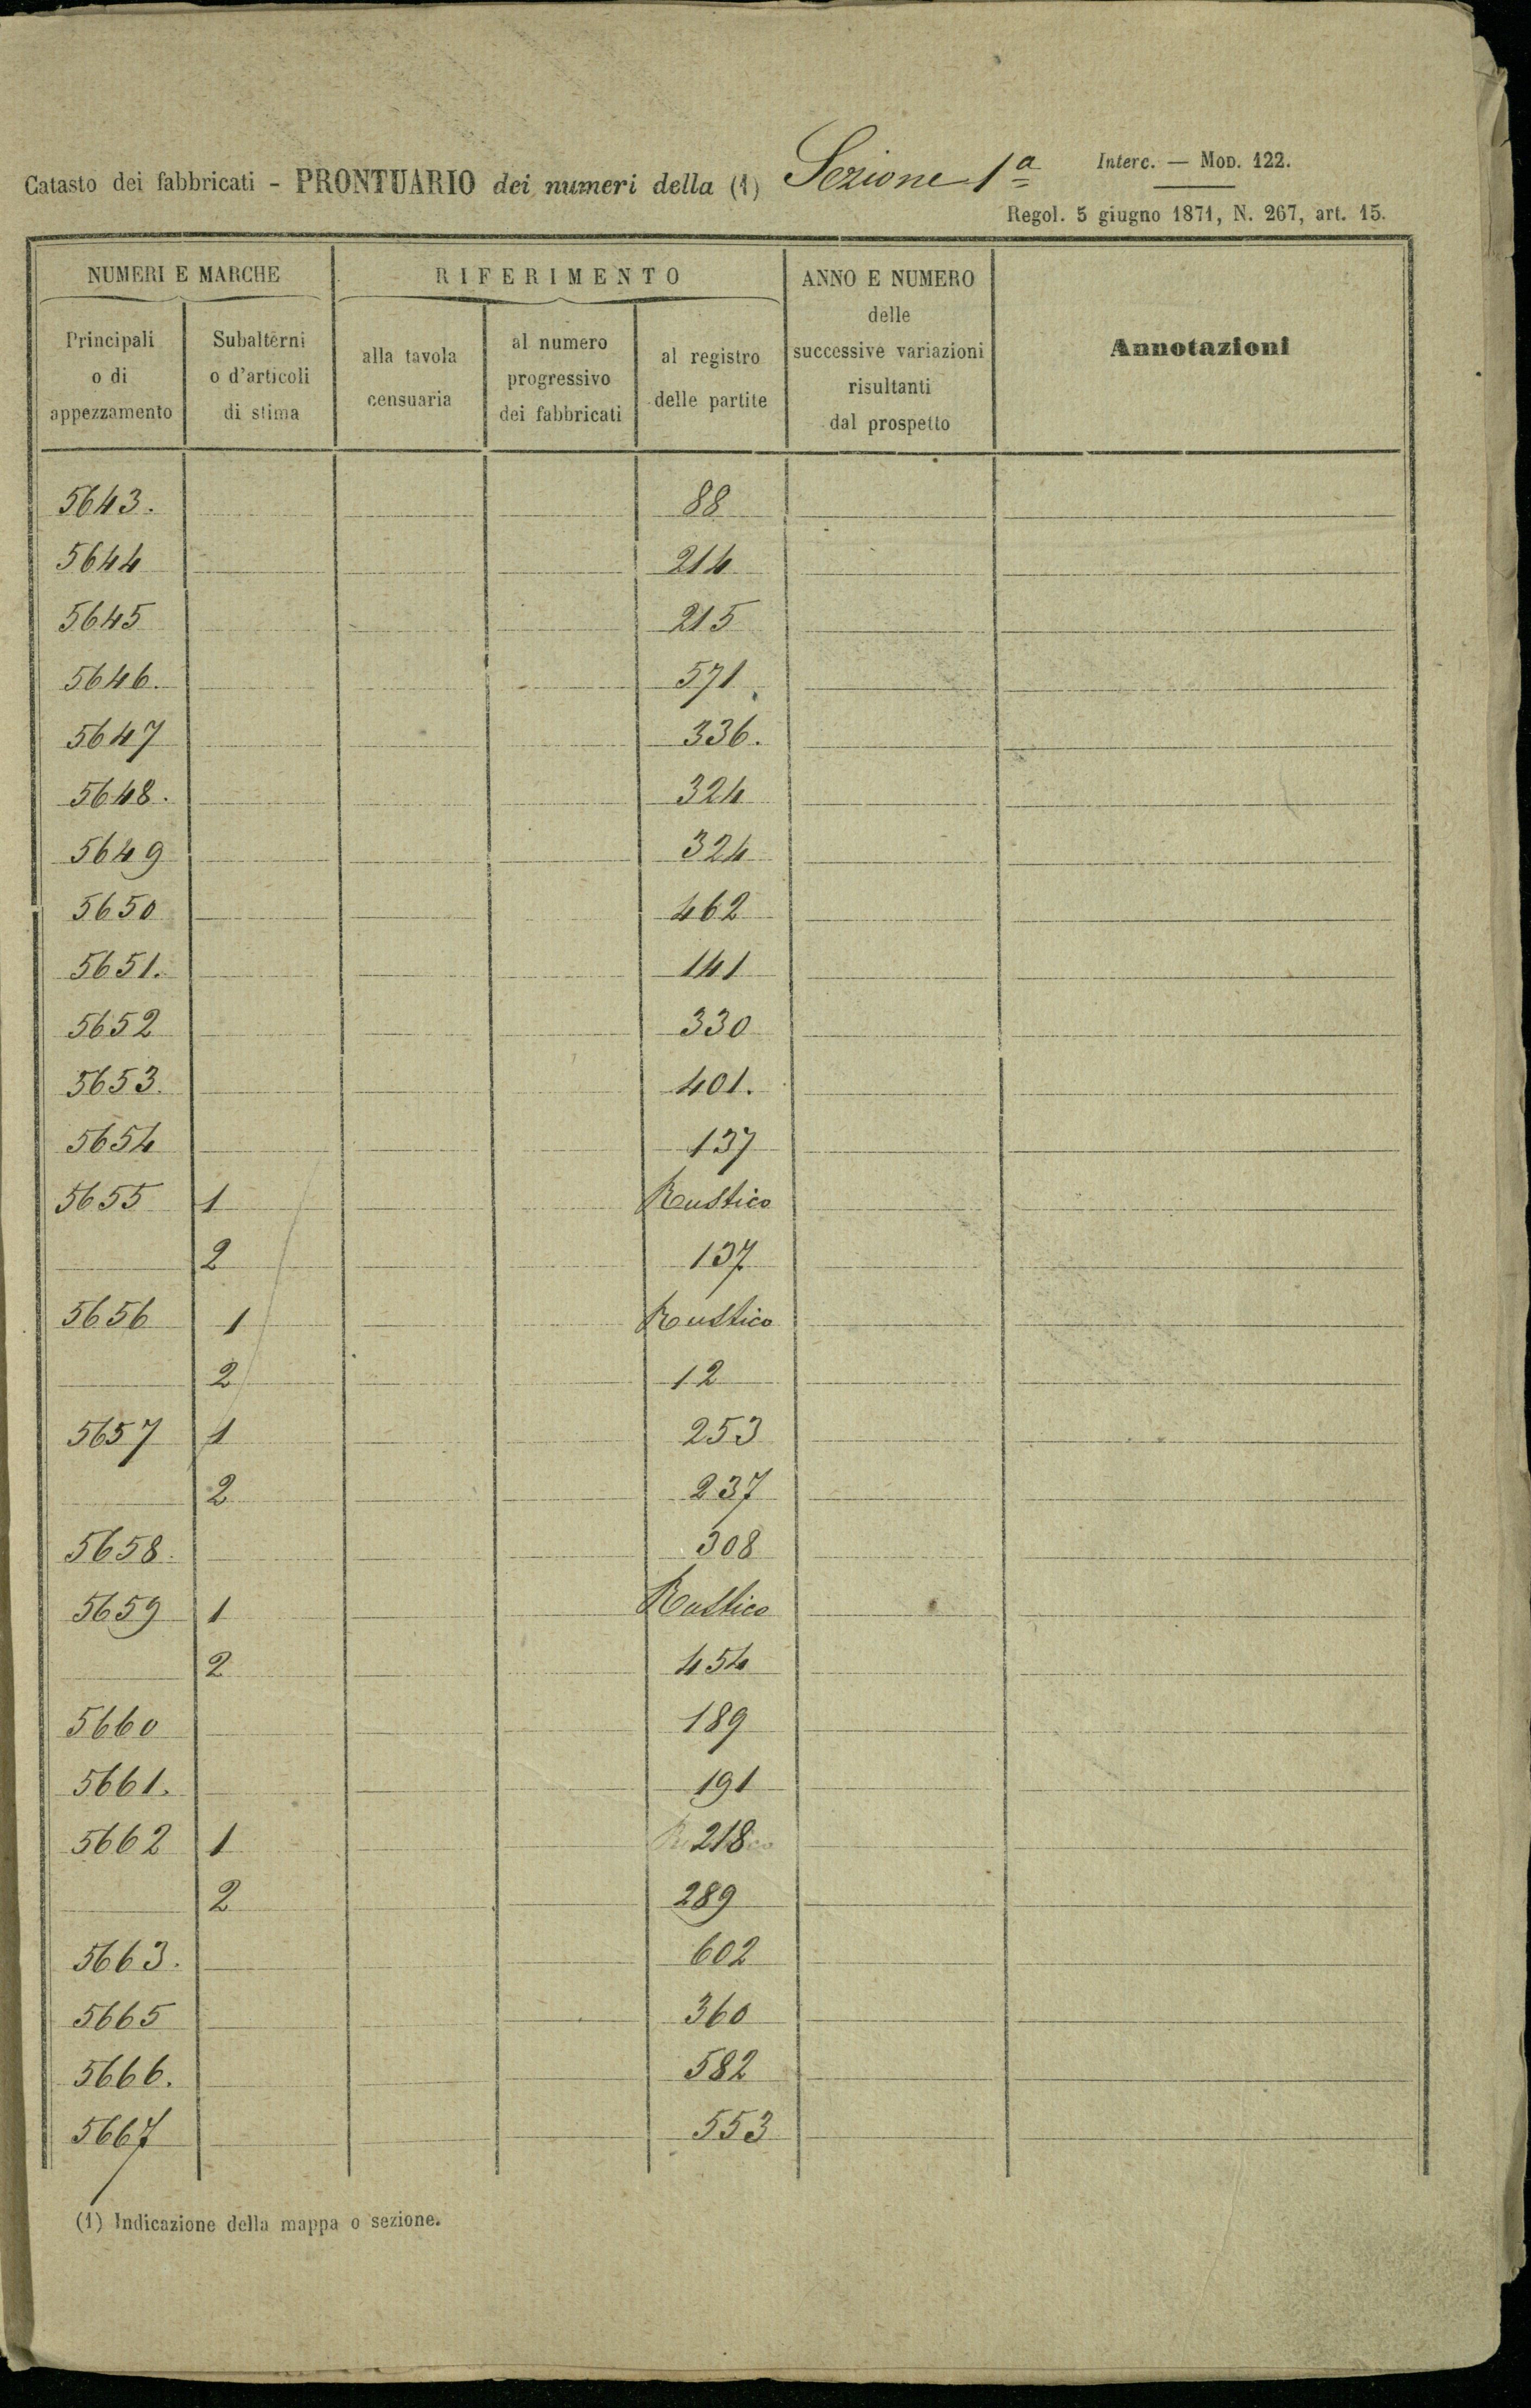 Catasto dei fabbricati - PRONTUARIO dei numeri della (1) Sezione 1ª
Interc. — Mod. 122.
Regol. 5 giugno 1871, N. 267, art. 15.
NUMERI E MARCHE
RIFERIMENTO
ANNO E NUMERO
delle
successive variazioni
risultanti
dal prospetto
Annotazioni
Principali
o di
appezzamento
Subalterni
o d'articoli
di stima
alla tavola
censuaria
al numero
progressivo
dei fabbricati
al registro
delle partite
5643. 88
5644 214
5645 215
5646. 571
5647 336.
5648. 324
5649 324
5650 462
5651. 141
5652 330
5653. 401.
5654 137
5655 1 Rustico
2 137
5656 1 Rustico
2 12
5657 1 253
2 237
5658. 308
5659 1 Rustico
2 454
5660 189
5661. 191
5662 1 218
2 289
5663. 602
5665 360
5666. 582
5667 553
(1) Indicazione della mappa o sezione.